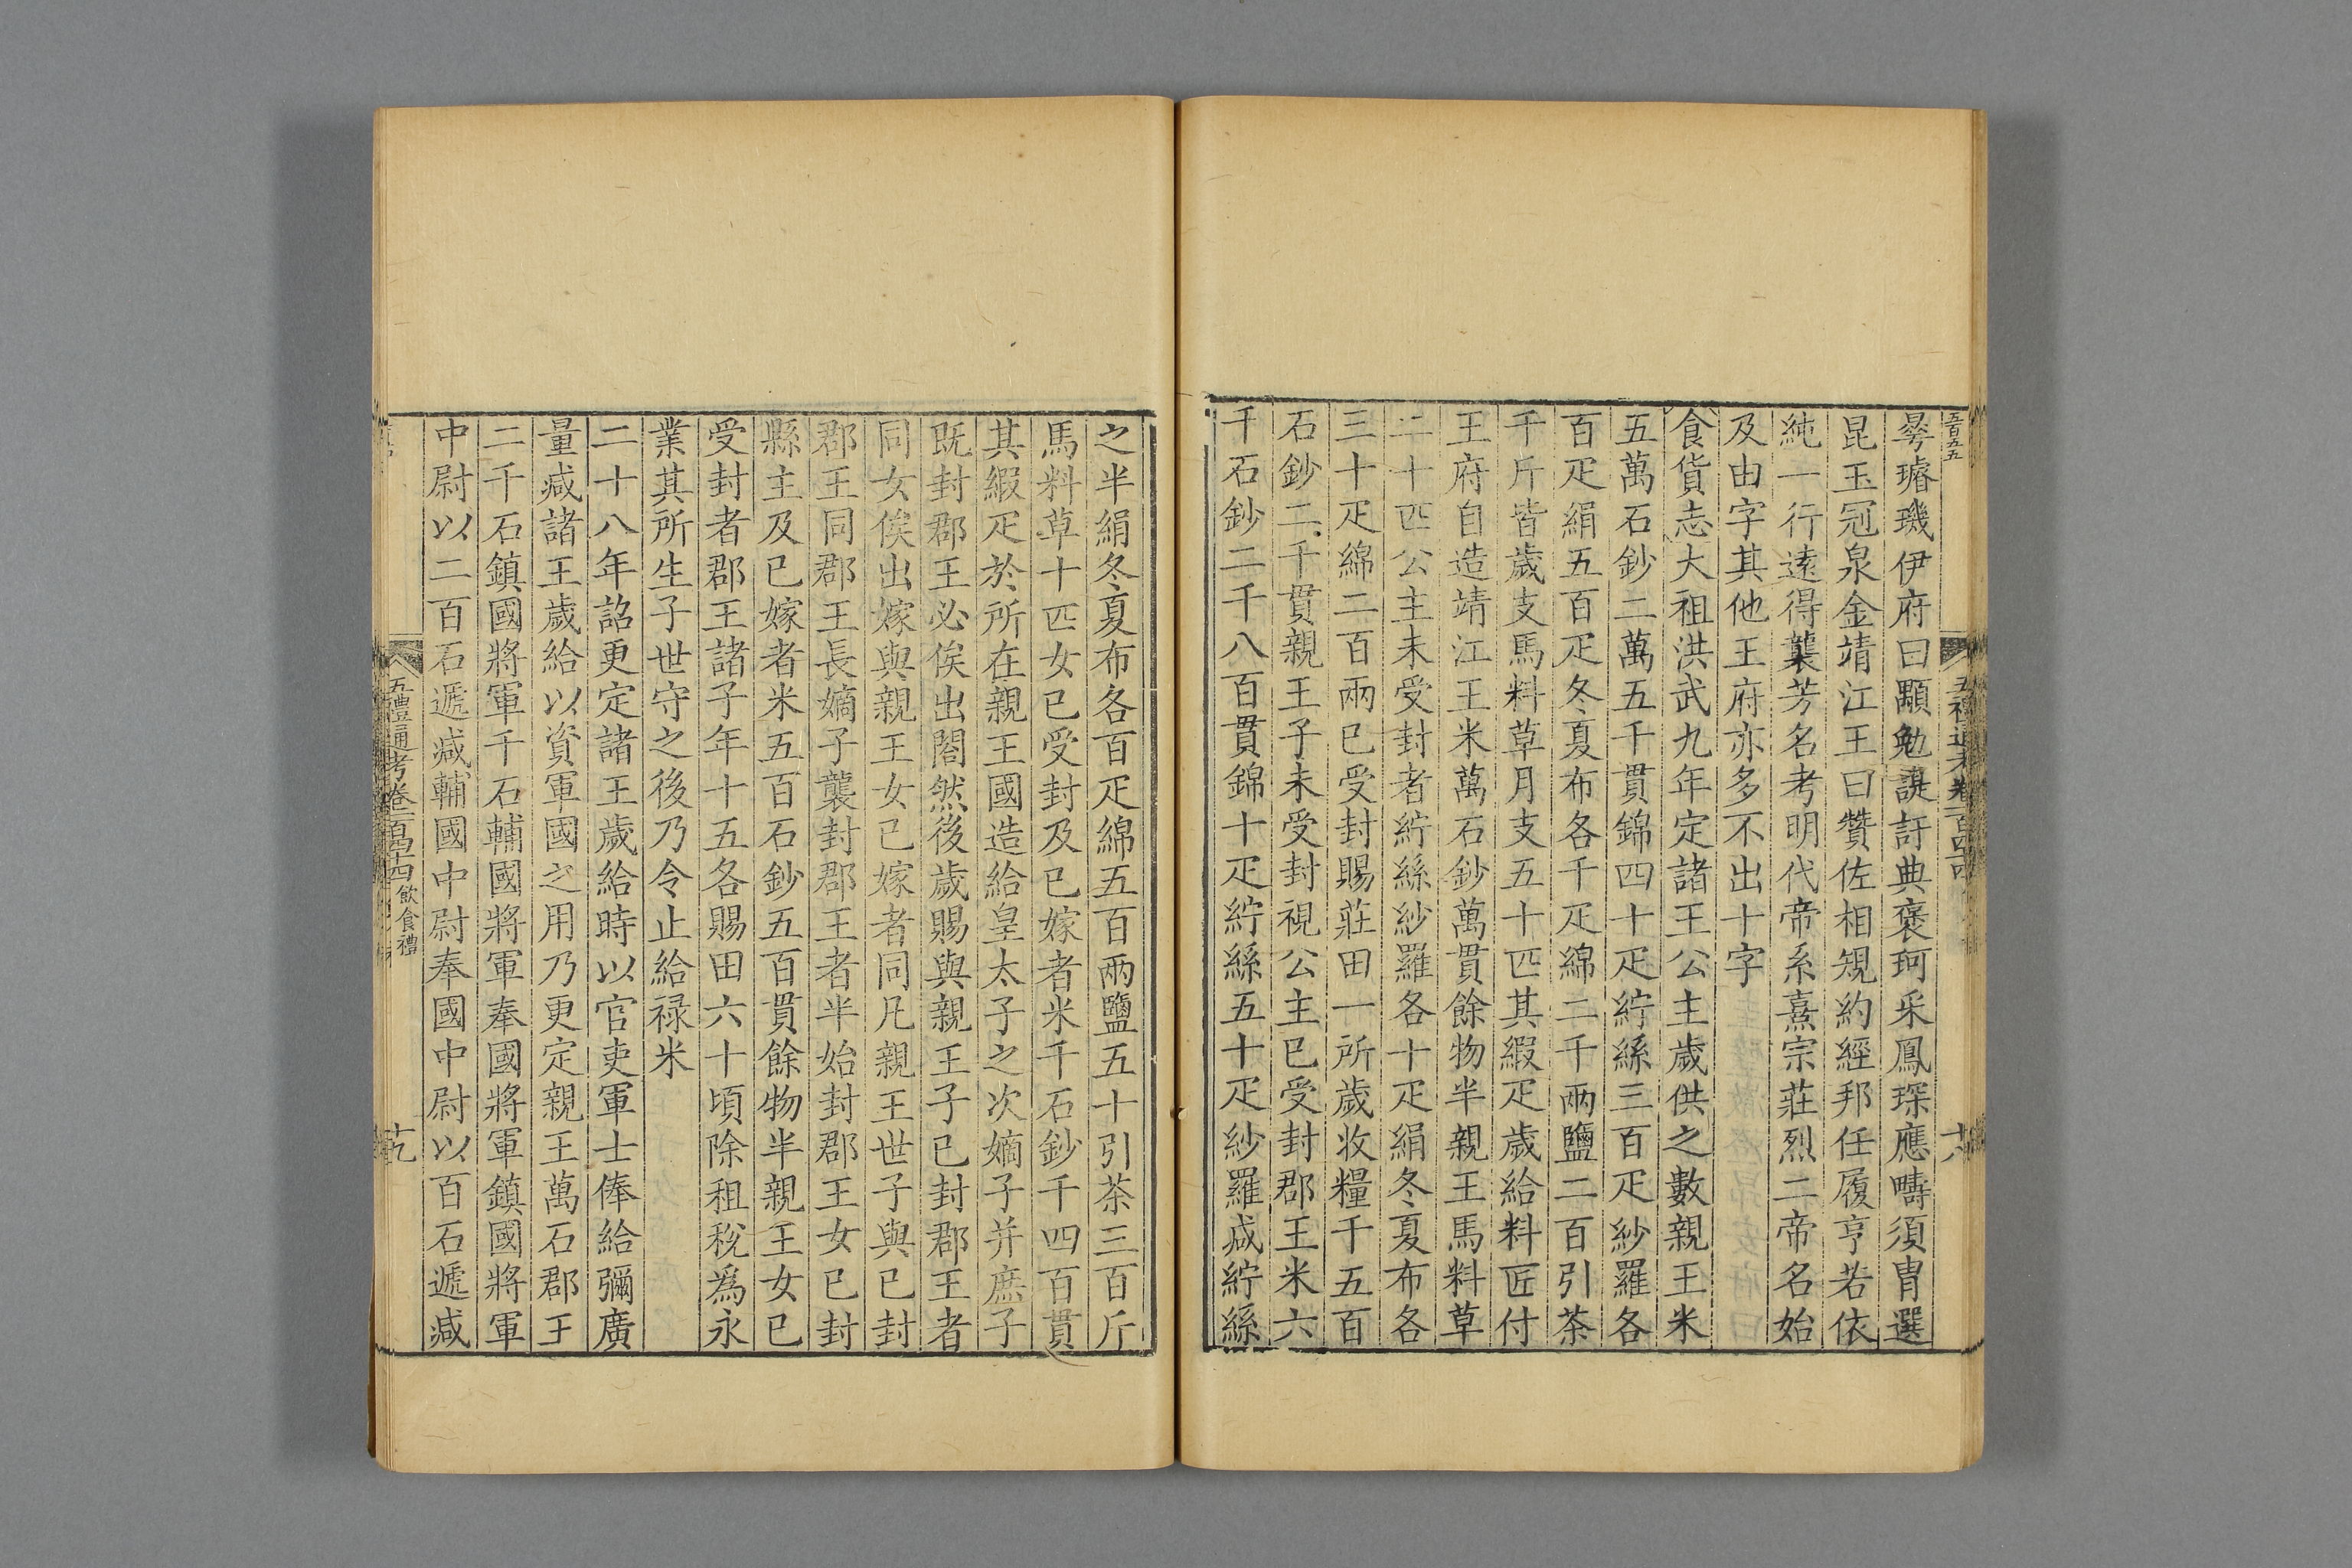 五百五五
五禮通考卷一百四十四
十八
㝵璿璣伊府曰顒勉諟訏典褒珂采鳳琛應疇須胄選
昆玉冠泉金靖江王曰贊佐相規約經邦任履亨若依
純一行遠得襲芳名考明代帝系熹宗莊烈二帝名始
及由字其他王府亦多不出十字
食貨志大祖洪武九年定諸王公主歲供之數親王米
五萬石鈔二萬五千貫錦四十疋紵絲三百疋紗羅各
百疋絹五百疋冬夏布各千疋綿二千兩鹽二百引茶
千斤皆歲支馬料草月支五十匹其緞疋歲給料匠付
王府自造靖江王米萬石鈔萬貫餘物半親王馬料草
二十匹公主未受封者紵絲紗羅各十疋絹冬夏布各
三十疋綿二百兩已受封賜莊田一所歲收糧千五百
石鈔二千貫親王子未受封視公主已受封郡王米六
千石鈔二千八百貫錦十疋紵絲五十疋紗羅減紵絲
之半絹冬夏布各百疋綿五百兩鹽五十引茶三百斤
馬料草十匹女已受封及已嫁者米千石鈔千四百貫
其緞疋於所在親王國造給皇太子之次嫡子并庶子
既封郡王必俟出閣然後歲賜與親王子已封郡王者
同女俟出嫁與親王女已嫁者同凡親王世子與已封
郡王同郡王長嫡子襲封郡王者半始封郡王女已封
縣主及已嫁者米五百石鈔五百貫餘物半親王女已
受封者郡王諸子年十五各賜田六十頃除租稅爲永
業其所生子世守之後乃令止給祿米
二十八年詔更定諸王歲給時以官吏軍士俸給彌廣
量減諸王歲給以資軍國之用乃更定親王萬石郡王
二千石鎮國將軍千石輔國將軍奉國將軍鎮國將軍
中尉以二百石遞減輔國中尉奉國中尉以百石遞減
五禮通考卷一百四十四 飲食禮
十九